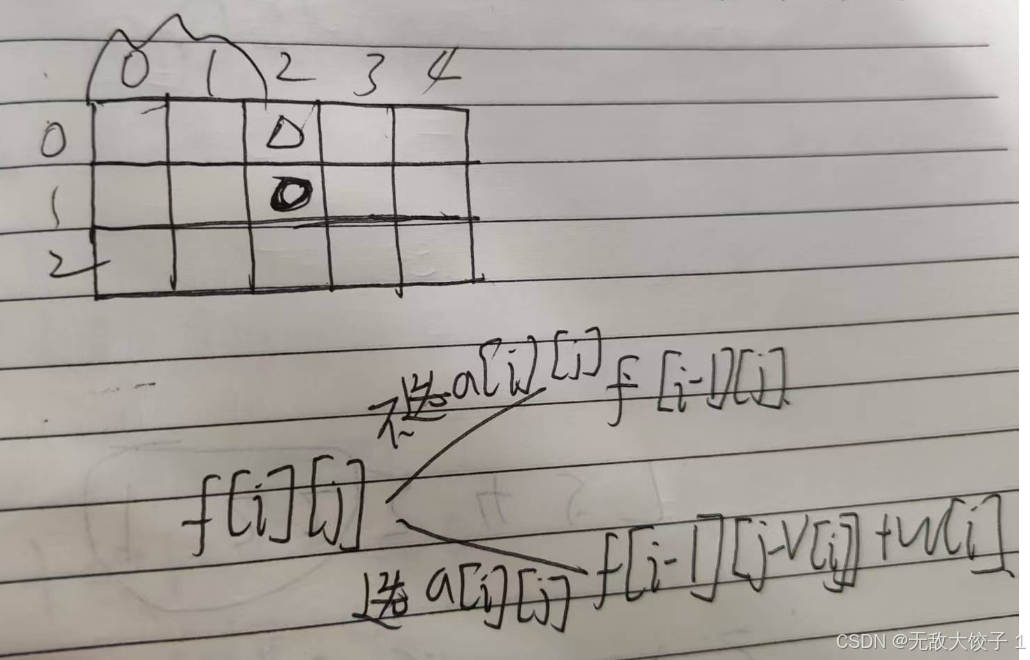 0 1 2 3 4
0
1
2
不选a[i][j] f[i-1][j]
f[i][j]
选a[i][j] f[i-1][j-V[i]]+w[i]
CSDN @无敌大饺子 1